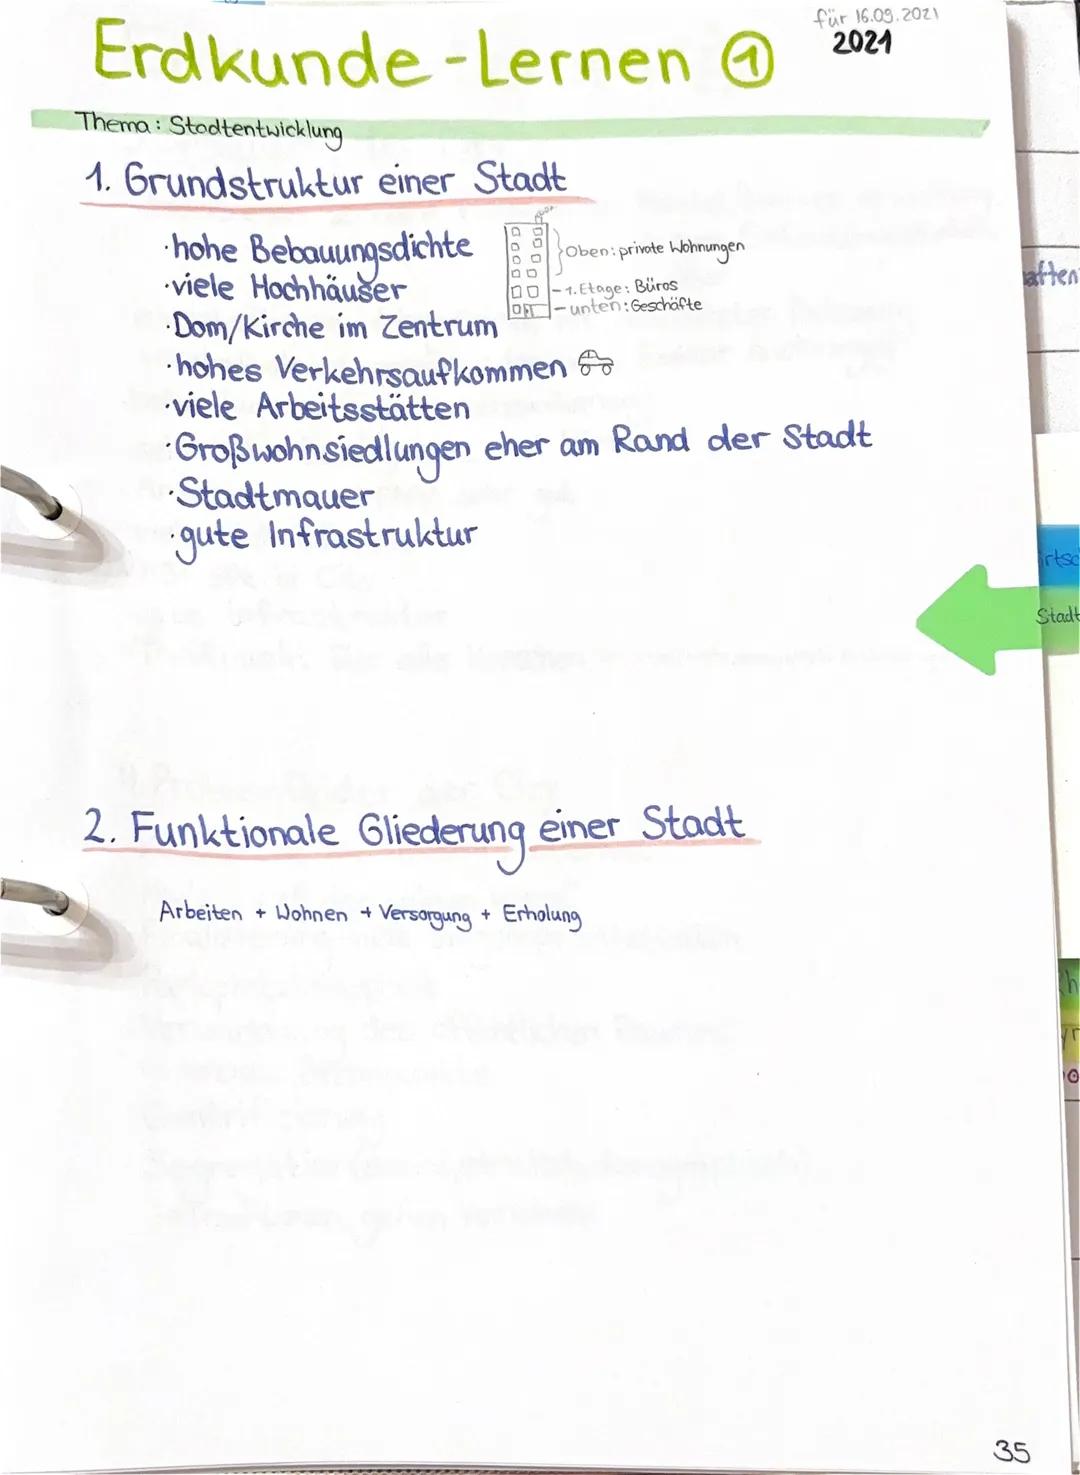 für 16.09.2021
Erdkunde-Lernen 1
2021
Thema: Stadtentwicklung
1. Grundstruktur einer Stadt
·hohe Bebauungsdichte
Oben: private Wohnungen
·viele Hochhäuser
-1. Etage: Büros
-unten: Geschäfte
·Dom/Kirche im Zentrum
·hohes Verkehrsaufkommen
·viele Arbeitsstätten
·Großwohnsiedlungen eher am Rand der Stadt
·Stadtmauer
·gute Infrastruktur
aften
irtsc
Stadt
2. Funktionale Gliederung einer Stadt
Arbeiten + Wohnen + Versorgung + Erholung
35